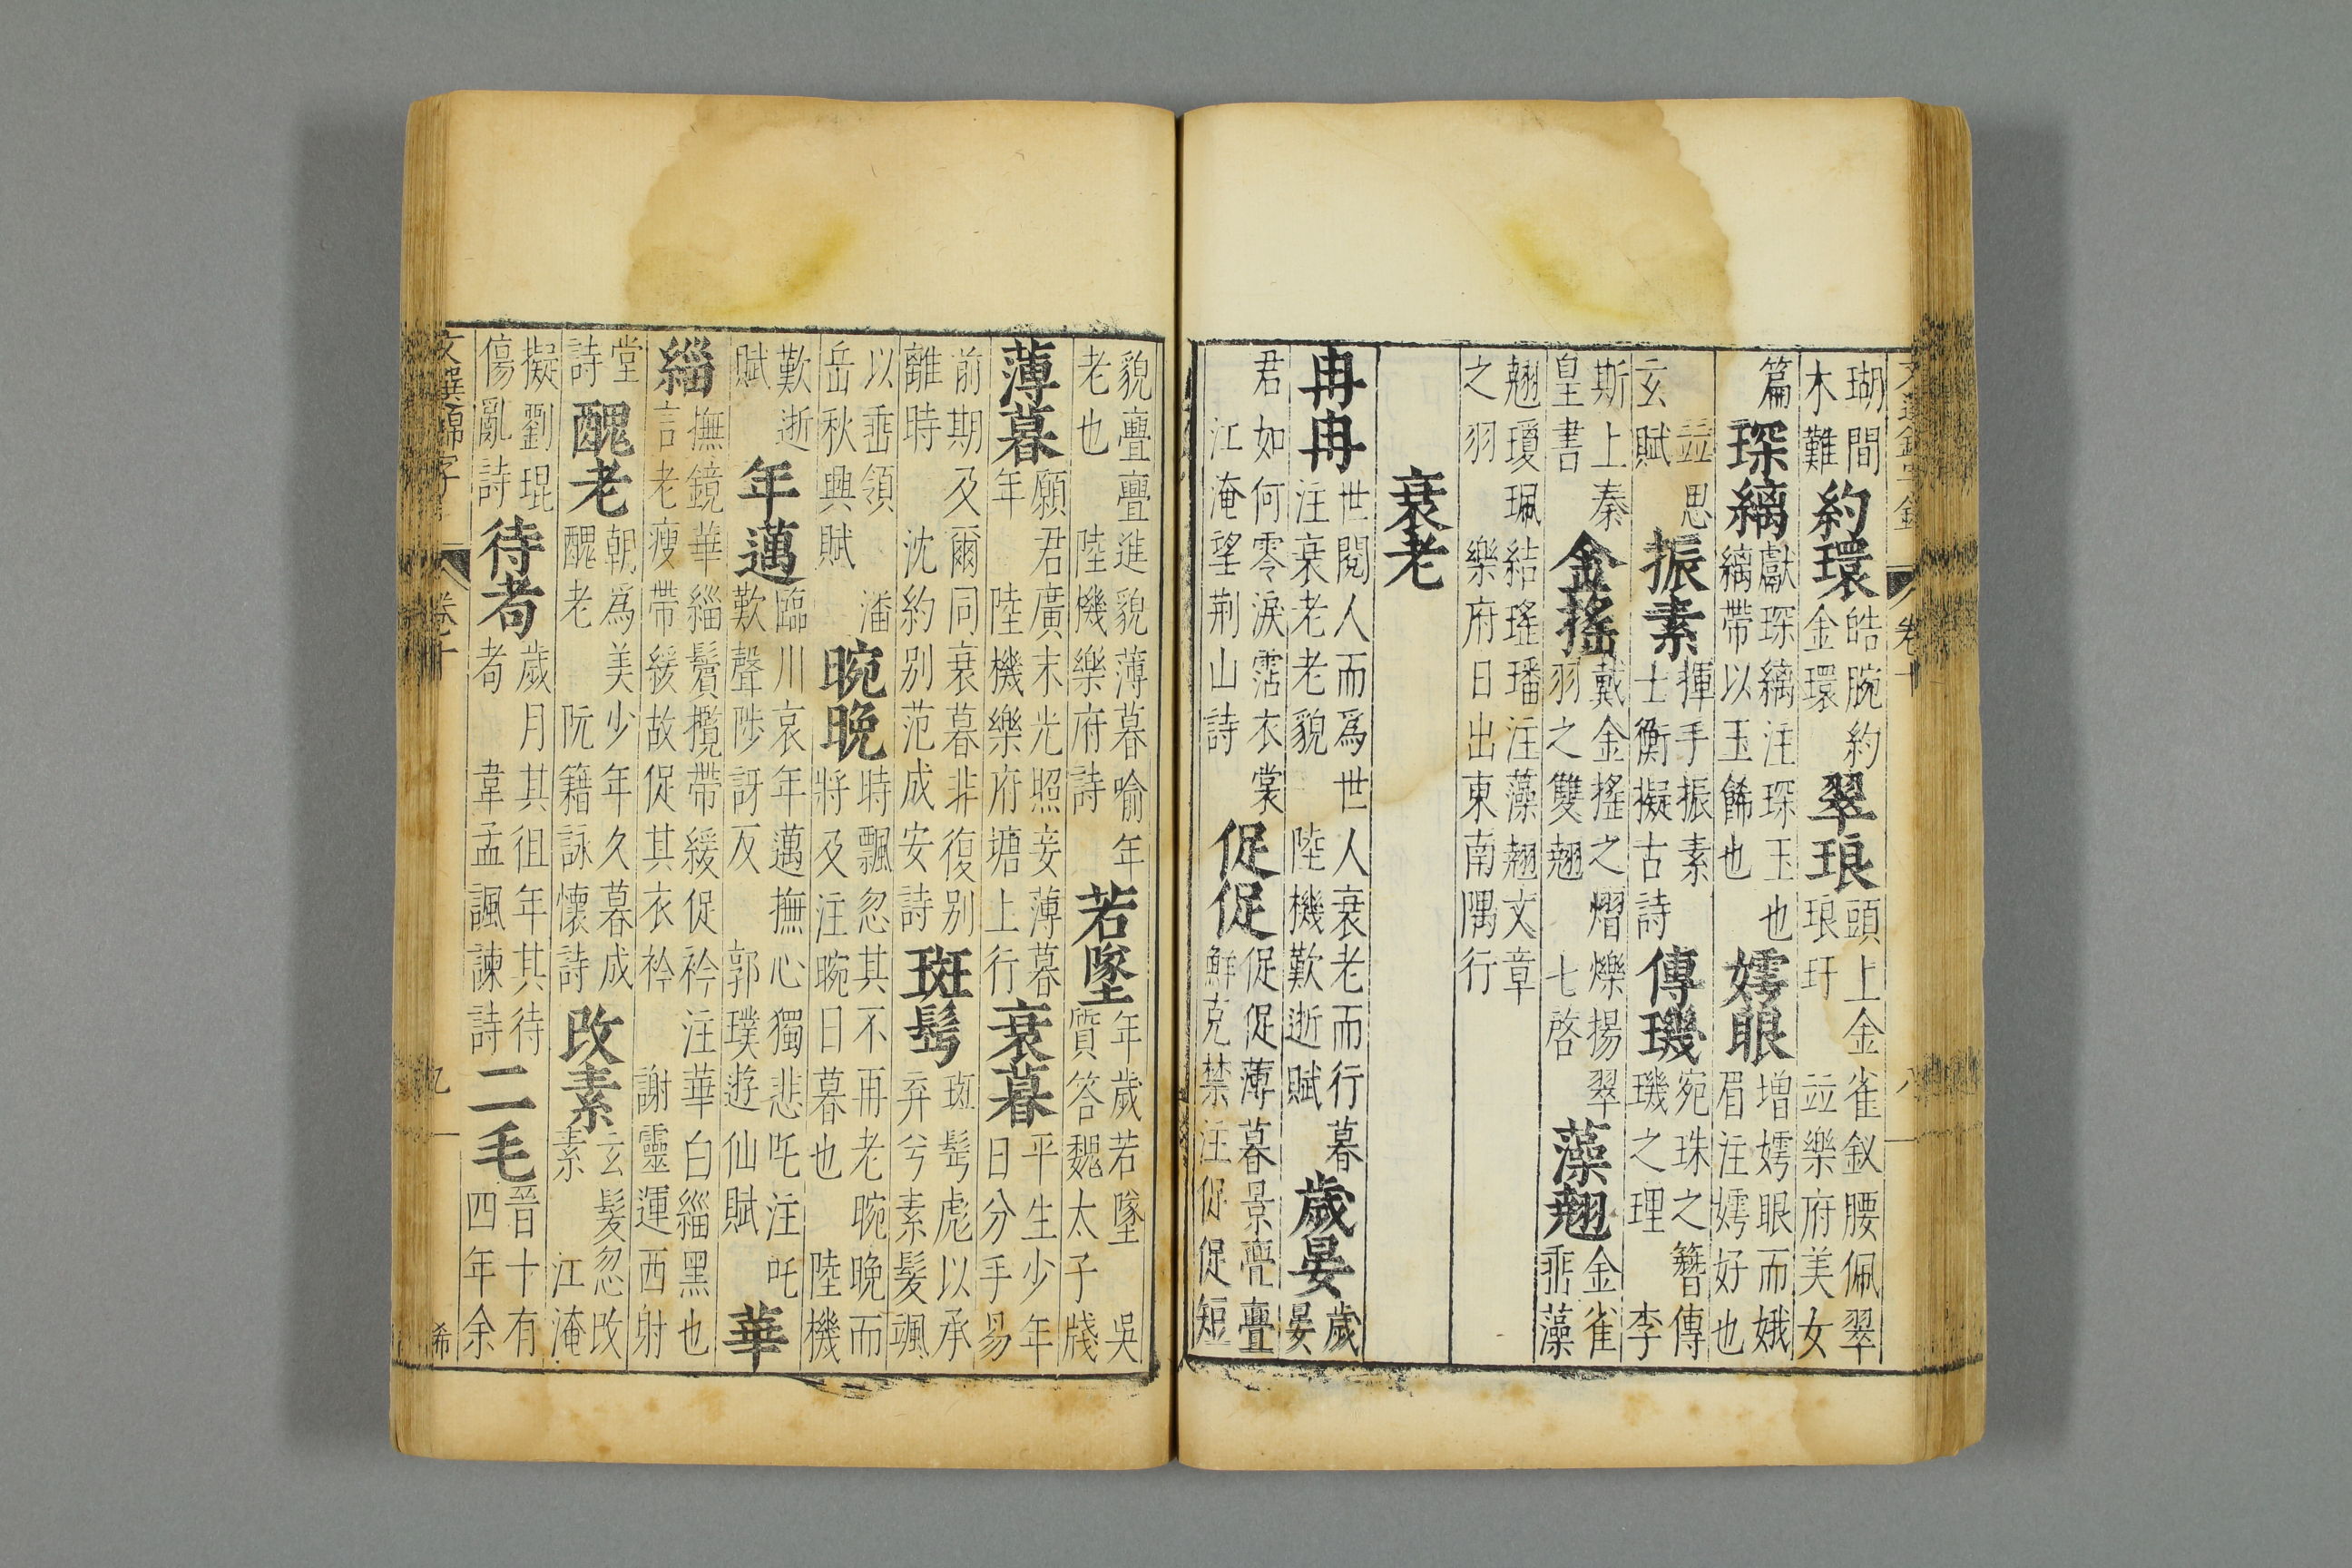 文選錦字錄 卷十 八
瑚間木難 約環 皓腕約金環 翠琅 頭上金雀釵腰佩翠琅玕 並樂府美女
篇 琛縭 獻琛縭注琛玉也縭帶以玉餙也 嫮眼 增嫮眼而娥眉注嫮好也
並思玄賦 振素 揮手振素士衡擬古詩 傳璣 宛珠之簪傳璣之理 李
斯上秦皇書 金搖 戴金搖之熠爍揚翠羽之雙翹 七啓 藻翹 金雀垂藻
翹瓊珮結瑤璠注藻翹文章之羽 樂府日出東南隅行
衰老
冉冉 世閱人而爲世人衰老而行暮注衰老老貌 陸機歎逝賦 歲晏 歲晏
君如何零淚霑衣裳 江淹望荆山詩 促促 促促薄暮景亹亹鮮克禁注促促短
貌亹亹進貌薄暮喻年老也 陸機樂府詩 若墜 年歲若墜 吳質答魏太子牋
薄暮 願君廣末光照妾薄暮年 陸機樂府塘上行 衰暮 平生少年日分手易
前期及爾同衰暮非復别離時 沈約别范成安詩 斑髩 斑髩彪以承弁兮素髮颯
以垂領 潘岳秋興賦 晼晚 時飄忽其不再老晼晚而將及注晼日暮也 陸機
歎逝賦 年邁 臨川哀年邁撫心獨悲吒注吒歎聲陟訝反 郭璞遊仙賦 華
緇 撫鏡華緇鬢攬帶緩促衿注華白緇黑也言老瘦帶緩故促其衣衿 謝靈運西射
堂詩 醜老 朝爲美少年久暮成醜老 阮籍詠懷詩 改素 玄髮忽改素 江淹
擬劉琨傷亂詩 待耇 歲月其徂年其待耇 韋孟諷諫詩 二毛 晉十有四年余
文選錦字 卷十 九 希